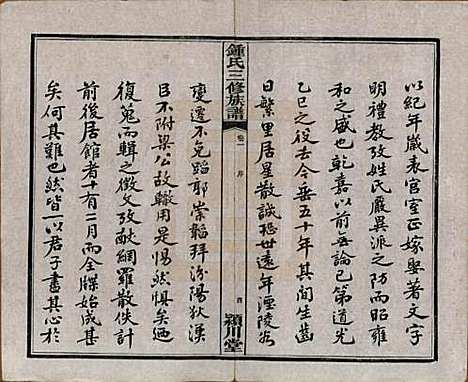 以紀年歲表官室正嫁娶著文字
明禮教攷姓氏嚴異派之防而昭雍
和之盛也乾嘉以前無論已第道光
乙巳之役去今垂五十年其間生齒
日繁里居星散誠恐世遠年湮陵谷
鍾氏三修族譜
卷一
序
四
潁川堂
變遷不免蹈耶崇韜拜汾陽狄漢
臣不附梁公故轍用是惕然懼矣迺
復蒐而輯之徵文攷獻網羅散佚計
前後居館者十有二月而全牒始成甚
矣何其難也然皆一以君子書其心於